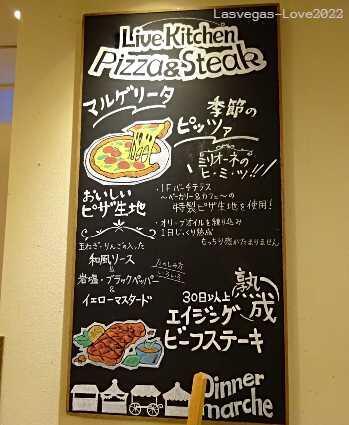 Lasvegas-Love2022
Live Kitchen
Pizza & Steak
マルゲリータ
季節の
ピッツァ
ミリオーネの
ヒ・ミ・ツ!!
おいしい
ピザ生地
・1Fバーチテラス
〜ベーカリー&カフェ〜の
特製ピザ生地を使用!
・オリーブオイルを練り込み
1日じっくり熟成
もっちり感がたまりません
玉ねぎ・りんごの入った
和風ソース
&
岩塩・ブラックペッパー
&
イエローマスタード
たのしみ方
いろいろ
30日以上
熟成
エイジング
ビーフステーキ
Dinner
marche